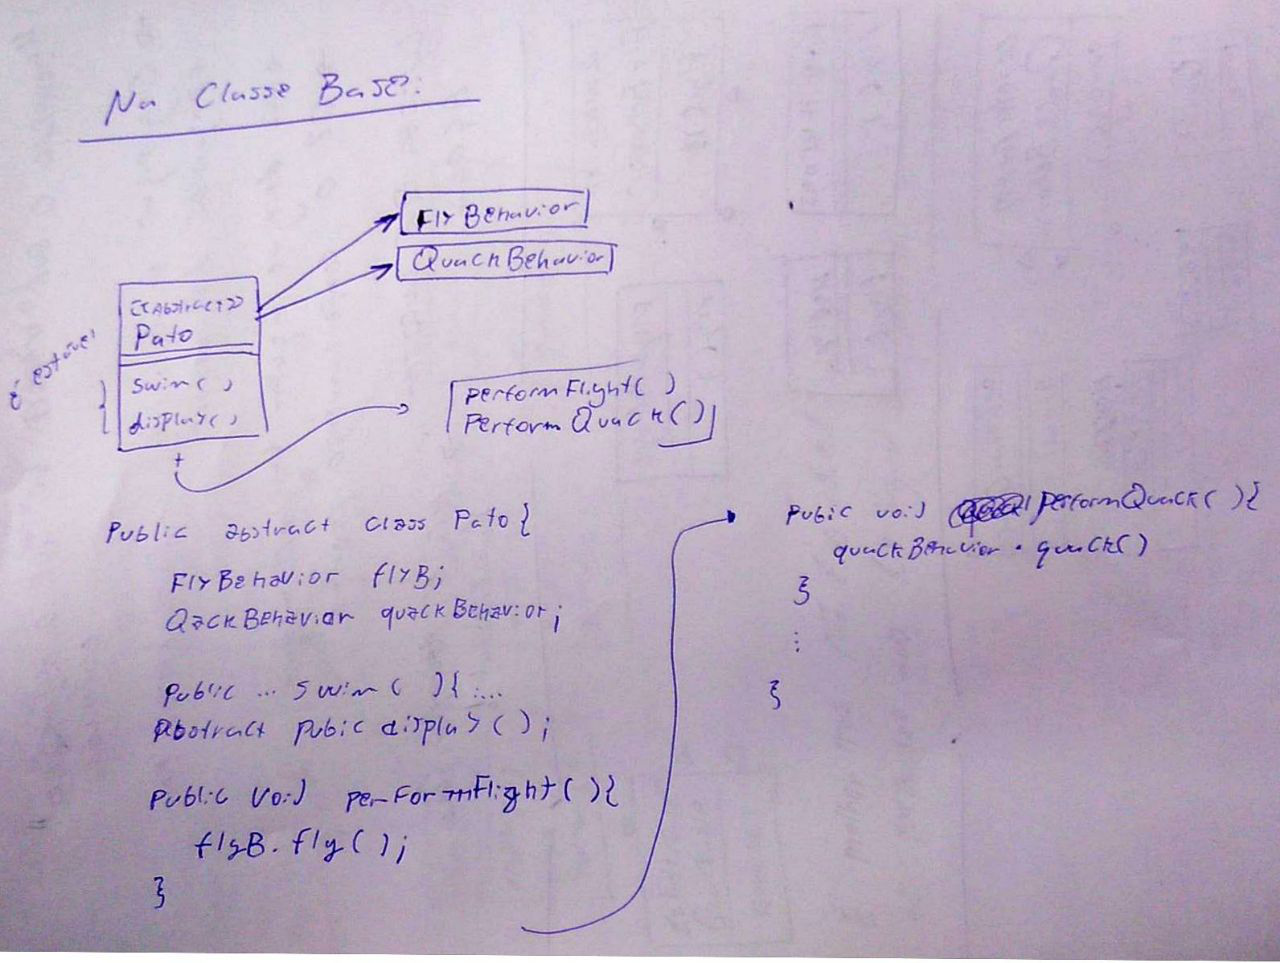 Na Classe Base:
FlyBehavior
QuackBehavior
<<Abstract>>
Pato
é estável
swim()
display()
+
performFlight()
PerformQuack()
Public abstract class Pato{
FlyBehavior flyB;
QackBehavior quackBehavior;
Public ... swim( ){ ...
Abstract Pubic display();
Public void performFlight(){
flyB.fly();
}
Pubic void performQuack(){
quackBehavior.quack()
}
...
}